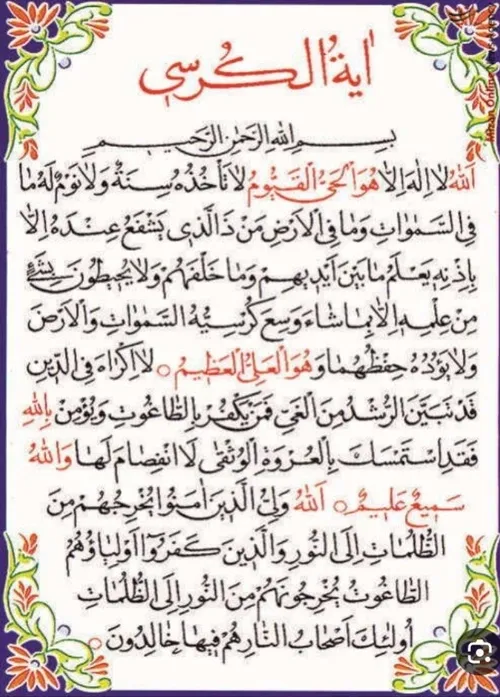 اٰیةُ الکُرسی
بِسمِ اللهِ الرَّحمٰنِ الرَّحیم
اَللّٰهُ لا اِلٰهَ اِلّا هُوَ الْحَیُّ الْقَیُّومُ لا تَأخُذُهُ سِنَةٌ وَلا نَومٌ لَهُ ما
فِی السَّمٰواتِ وَما فِی الاَرْضِ مَنْ ذَا الَّذی یَشْفَعُ عِنْدَهُ اِلّا
بِاِذْنِهِ یَعْلَمُ ما بَینَ اَیدیهِمْ وَما خَلْفَهُمْ وَلا یُحیطُونَ بِشَیْءٍ
مِنْ عِلْمِهِ اِلّا بِما شاءَ وَسِعَ کُرْسِیُّهُ السَّمٰواتِ وَالْاَرْضَ
وَلا یَؤُدُهُ حِفْظُهُما وَهُوَ الْعَلِیُّ الْعَظیمُ لا اِکْراهَ فِی الدّینِ
قَدْ تَبَیَّنَ الرُّشْدُ مِنَ الْغَیِّ فَمَنْ یَکْفُرْ بِالطّاغُوتِ وَیُؤْمِنْ بِاللهِ
فَقَدِ اسْتَمْسَکَ بِالْعُرْوَةِ الْوُثْقیٰ لَا انْفِصامَ لَها وَاللهُ
سَمیعٌ عَلیمٌ اَللهُ وَلِیُّ الَّذینَ اٰمَنُوا یُخْرِجُهُمْ مِنَ
الظُّلُماتِ اِلَی النُّورِ وَالَّذینَ کَفَرُوا اَوْلِیاؤُهُمُ
الطّاغُوتُ یُخْرِجُونَهُمْ مِنَ النُّورِ اِلَی الظُّلُماتِ
اُولٰئِکَ اَصْحابُ النّارِ هُمْ فیها خالِدُونَ